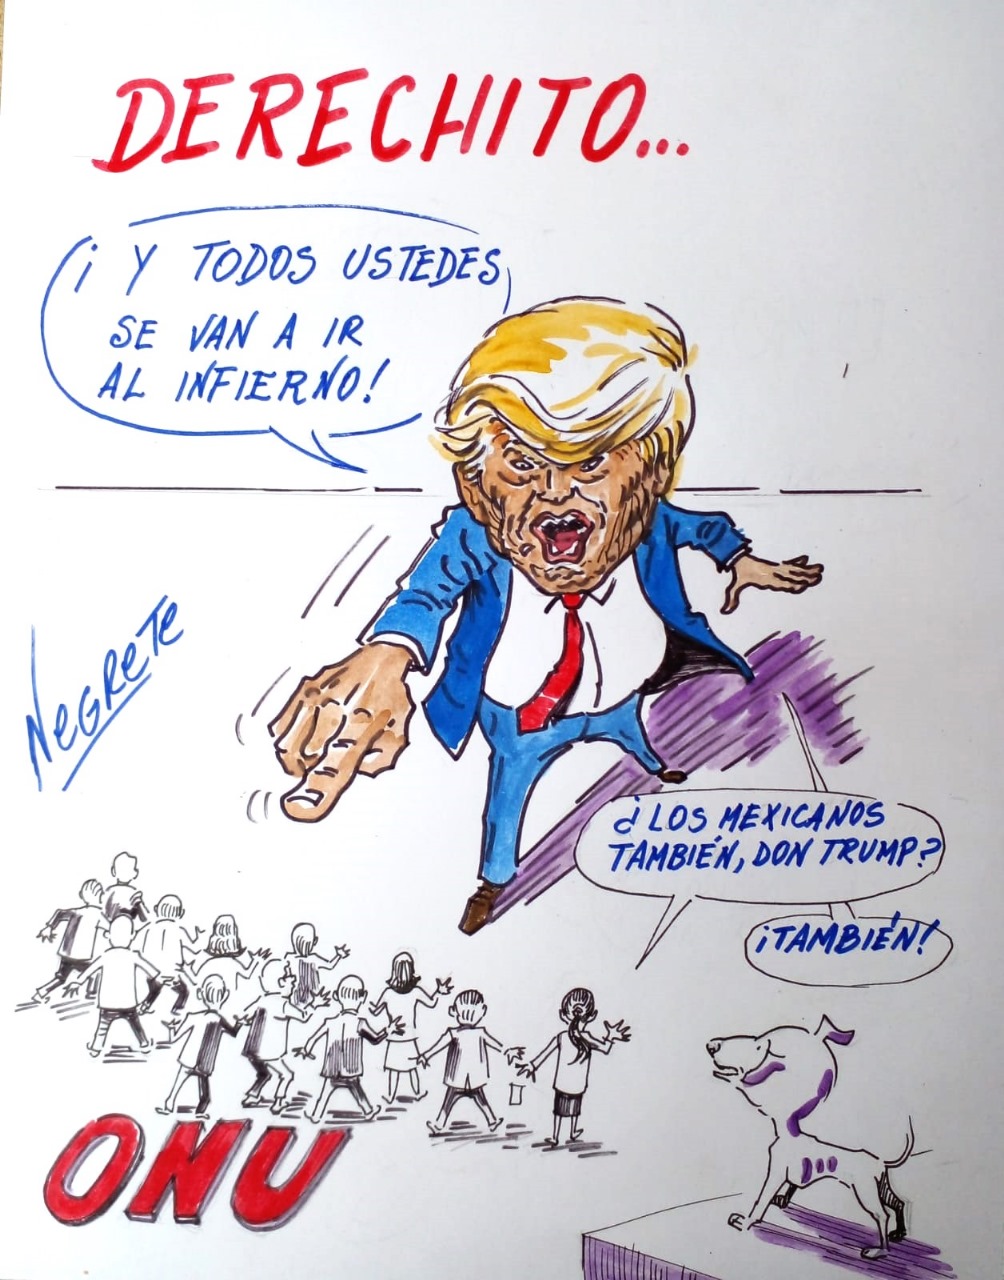 DERECHITO...
¡Y TODOS USTEDES
SE VAN A IR
AL INFIERNO!
NEGRETE
¿LOS MEXICANOS
TAMBIÉN, DON TRUMP?
¡TAMBIÉN!
ONU